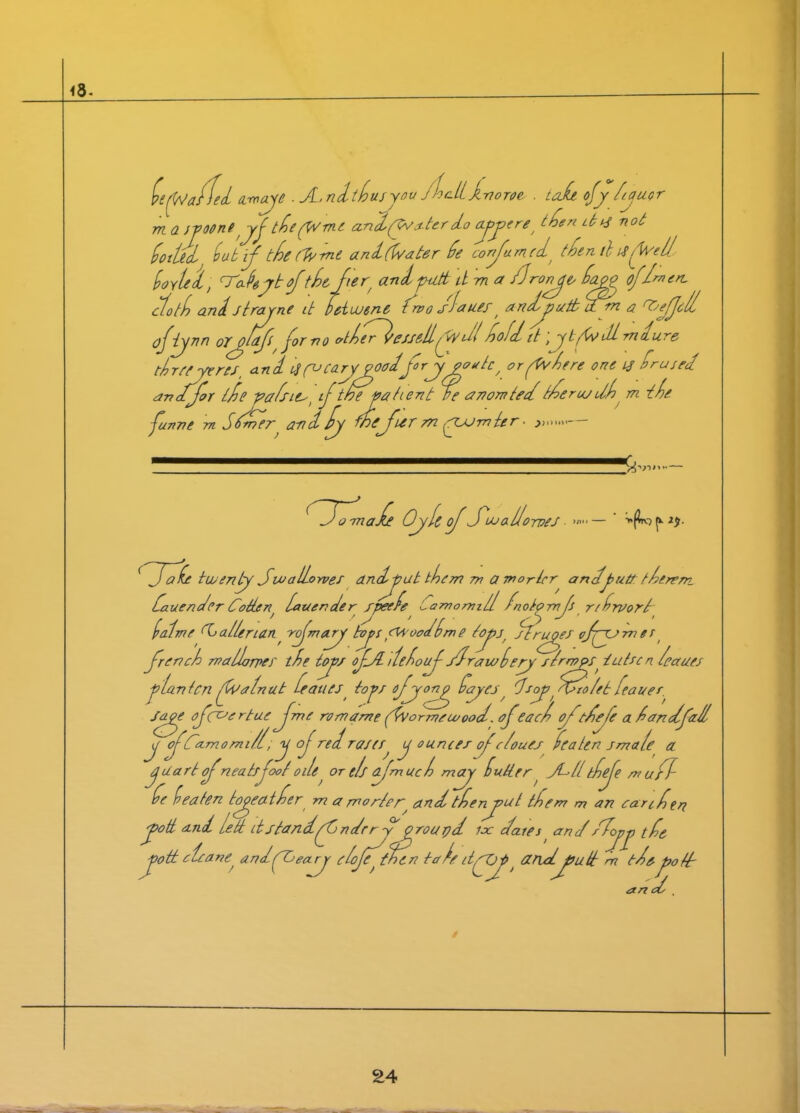 18.
be wasted awaye. And thus you shall knowe. take of yͤ liquor
in a spoone, yf the wine and water do appere, then it is not
boiled, but if the wine and water be consumed, then it is well
boyled; Take yt of the fier, and putt it in a stronge bagg of linnen
cloth and strayne it betwene two staues, and putt it in a vessell
of tynn or glass, for no other vessell will hold it; yt will indure
three yeres, and is very good for yͤ goute, or where one is brused
and for the palsie, if the patient be anointed therwith in the
sunne in Somer, and by the fier in winter.
To make Oyle of Swallowes.
Take twenty Swallowes and put them in a morter, and putt therein
Lauender Cotten, Lauender speeke, Camomill, knotgrass, ribwort
balme, Vallerian, rosmary tops, woodbine tops, strynges of vines,
french mallowes, the tops of Alehouf, strawbery strings, tutsen leaues
planten, walnut leaues, tops of yong bayes, Isop, violet leaues,
sage of vertue, fine romaine wormewood. of each of these a handfull
ij of Camomill, ij of red roses, ij ounces of cloues beaten smale, a
quart of neatsfoot oile, or els asmuch may butter, All these must
be beaten togeather in a morter, and then put them in an earthen
pott and lett it stand vnder yͤ ground ix daies, and stopp the
pott cleane, and veary close, then take it vp, and putt in the pott
and.
24